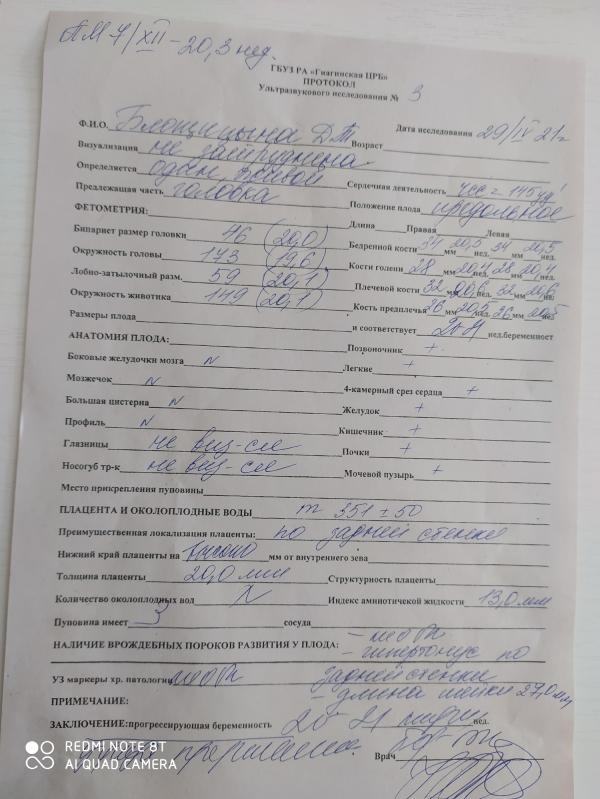 ПМ 7/XII - 20,3 нед.
ГБУЗ РА «Гиагинская ЦРБ»
ПРОТОКОЛ
Ультразвукового исследования № 3
Дата исследования 29/IV 21г
Ф.И.О. Возраст
Визуализация не затруднена
Определяется один, живой Сердечная деятельность ЧСС = 145 уд/
Предлежащая часть головка Положение плода продольное
ФЕТОМЕТРИЯ: Длина Правая Левая
Бипариет размер головки 46 (20,0) Бедренной кости 34 мм 20,5 нед. 34 мм 20,5 нед.
Окружность головы 173 (19,6) Кости голени 28 мм 20,4 нед. 28 мм 20,4 нед.
Лобно-затылочный разм. 59 (20,1) Плечевой кости 32 мм 20,6 нед. 32 мм 20,6 нед.
Окружность животика 149 (20,1) Кость предплечья 26 мм 20,5 нед. 26 мм 20,5 нед.
Размеры плода и соответствует 20 нед.беременност
АНАТОМИЯ ПЛОДА: Позвоночник +
Боковые желудочки мозга N Легкие +
Мозжечок N 4-камерный срез сердца +
Большая цистерна N Желудок +
Профиль N Кишечник +
Глазницы не виз-ся Почки +
Носогуб тр-к не виз-ся Мочевой пузырь +
Место прикрепления пуповины
ПЛАЦЕНТА И ОКОЛОПЛОДНЫЕ ВОДЫ m 351 ± 50
Преимущественная локализация плаценты: по задней стенке
Нижний край плаценты на высоко мм от внутреннего зева
Толщина плаценты 20,0 мм Структурность плаценты
Количество околоплодных вод N Индекс амниотической жидкости 13,0 мм
Пуповина имеет 3 сосуда
НАЛИЧИЕ ВРОЖДЕБНЫХ ПОРОКОВ РАЗВИТИЯ У ПЛОДА:
- гипертонус по
УЗ маркеры хр. патологии задней стенки
- длина шейки 27,0 мм
ПРИМЕЧАНИЕ:
ЗАКЛЮЧЕНИЕ:прогрессирующая беременность 20 нед.
Угроза прерывания. Врач
REDMI NOTE 8T
AI QUAD CAMERA